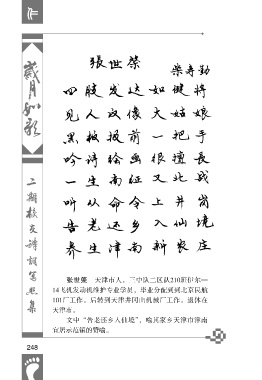 岁月如歌
二期校友诗词笔墨集
张世荣
荣寿勤
四肢发达如健将
见人汉像大姑娘
黑板报前一把手
吟诗绘画很擅长
一生南征又北战
听从命令上井岗
告老还乡入仙境
养生津南新农庄
张世荣 天津市人，三中队二区队210班伊尔—
14飞机发动机维护专业学员，毕业分配到到北京民航
101厂工作，后转到天津井冈山机械厂工作。退休在
天津市。
文中“告老还乡入仙境”，喻其家乡天津市津南
宜居示范镇的赞喻。
248